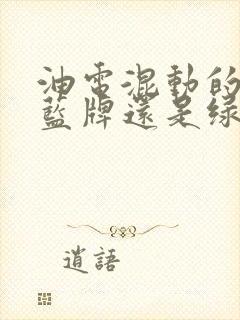 油電混動的
藍牌還是綠
逍語